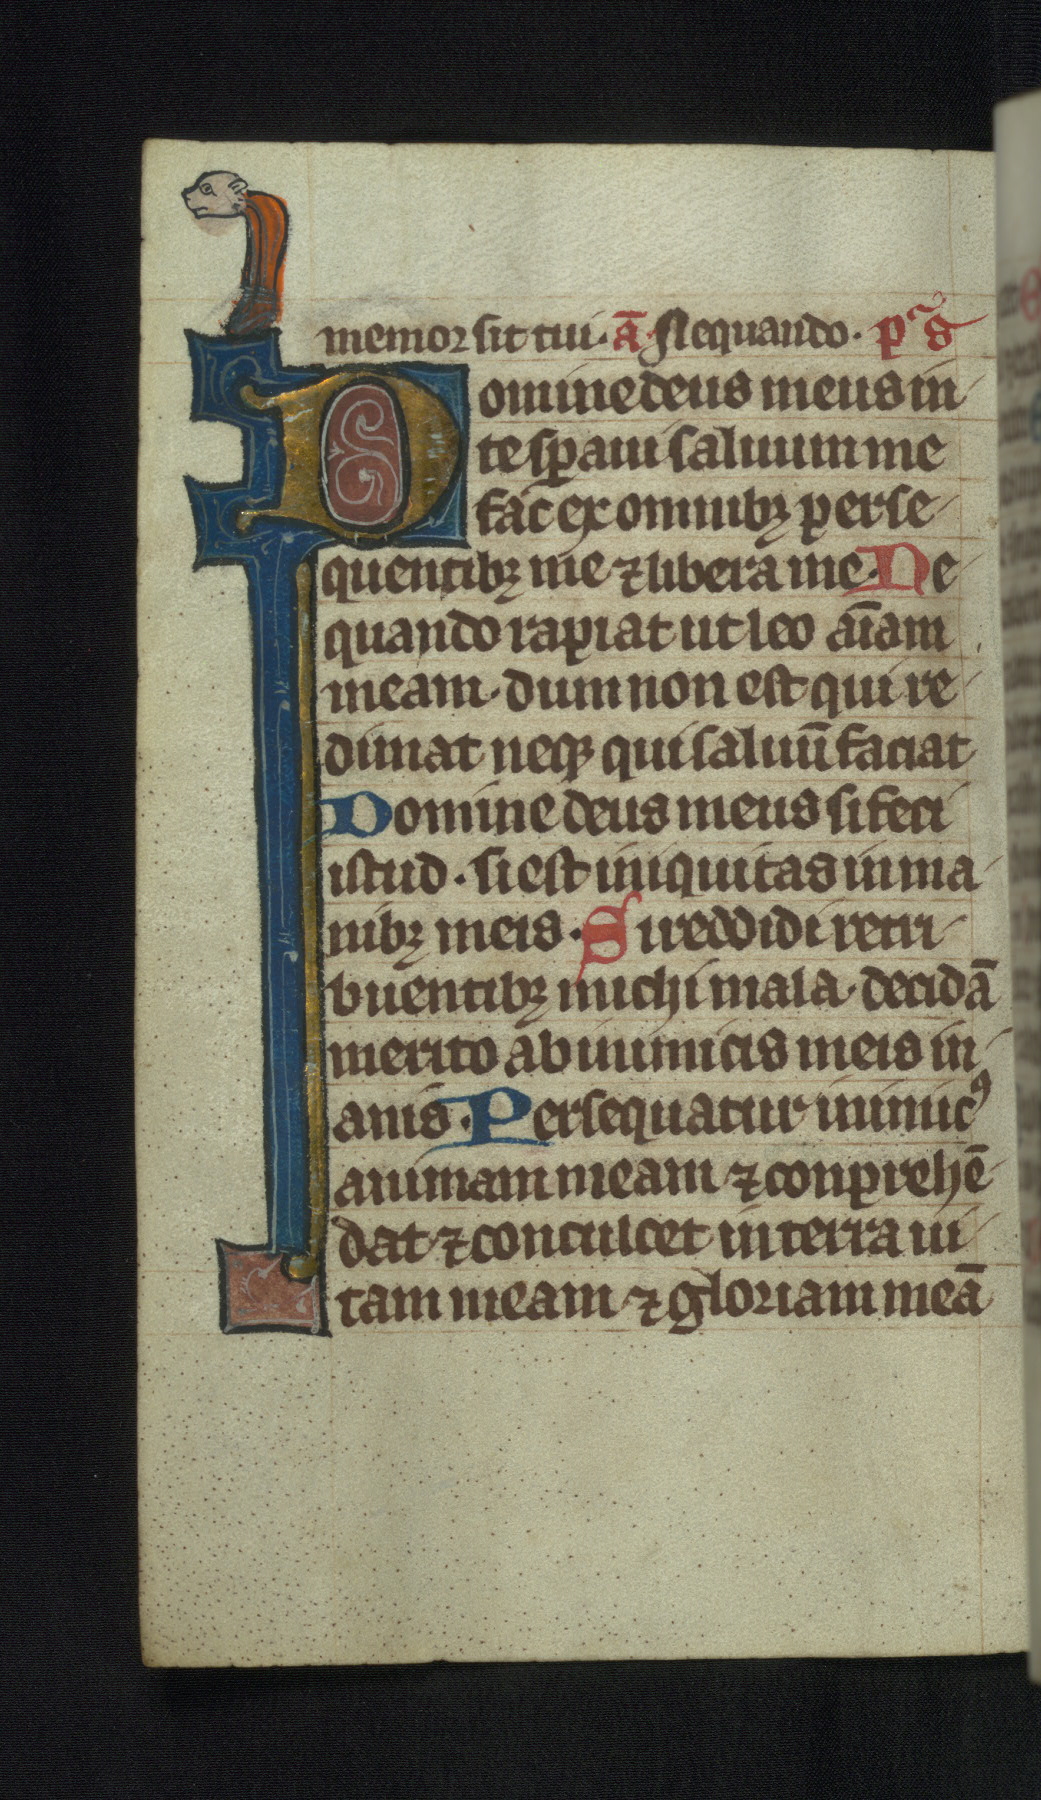 memor sit tui · ā Nequando · pͨ g̅
Domine deus meus in
te sꝑaui saluum me
fac ex omnibꝫ ꝑ perse
quentibꝫ me ⁊ libera me · Ne
quando rapiat ut leo aı̄am
meam · dum non est qui re
dimat neqꝫ qui saluū faciat
Domine deus meus si feci
istud · si est iniquitas in ma
nibꝫ meis · Si reddidi retri
buentibꝫ michi mala · decidā
merito ab inimicis meis in
anis · Persequatur inimicꝰ
animam meam ⁊ conprehē
dat ⁊ conculcet in terra ui
tam meam ⁊ gloriam meā